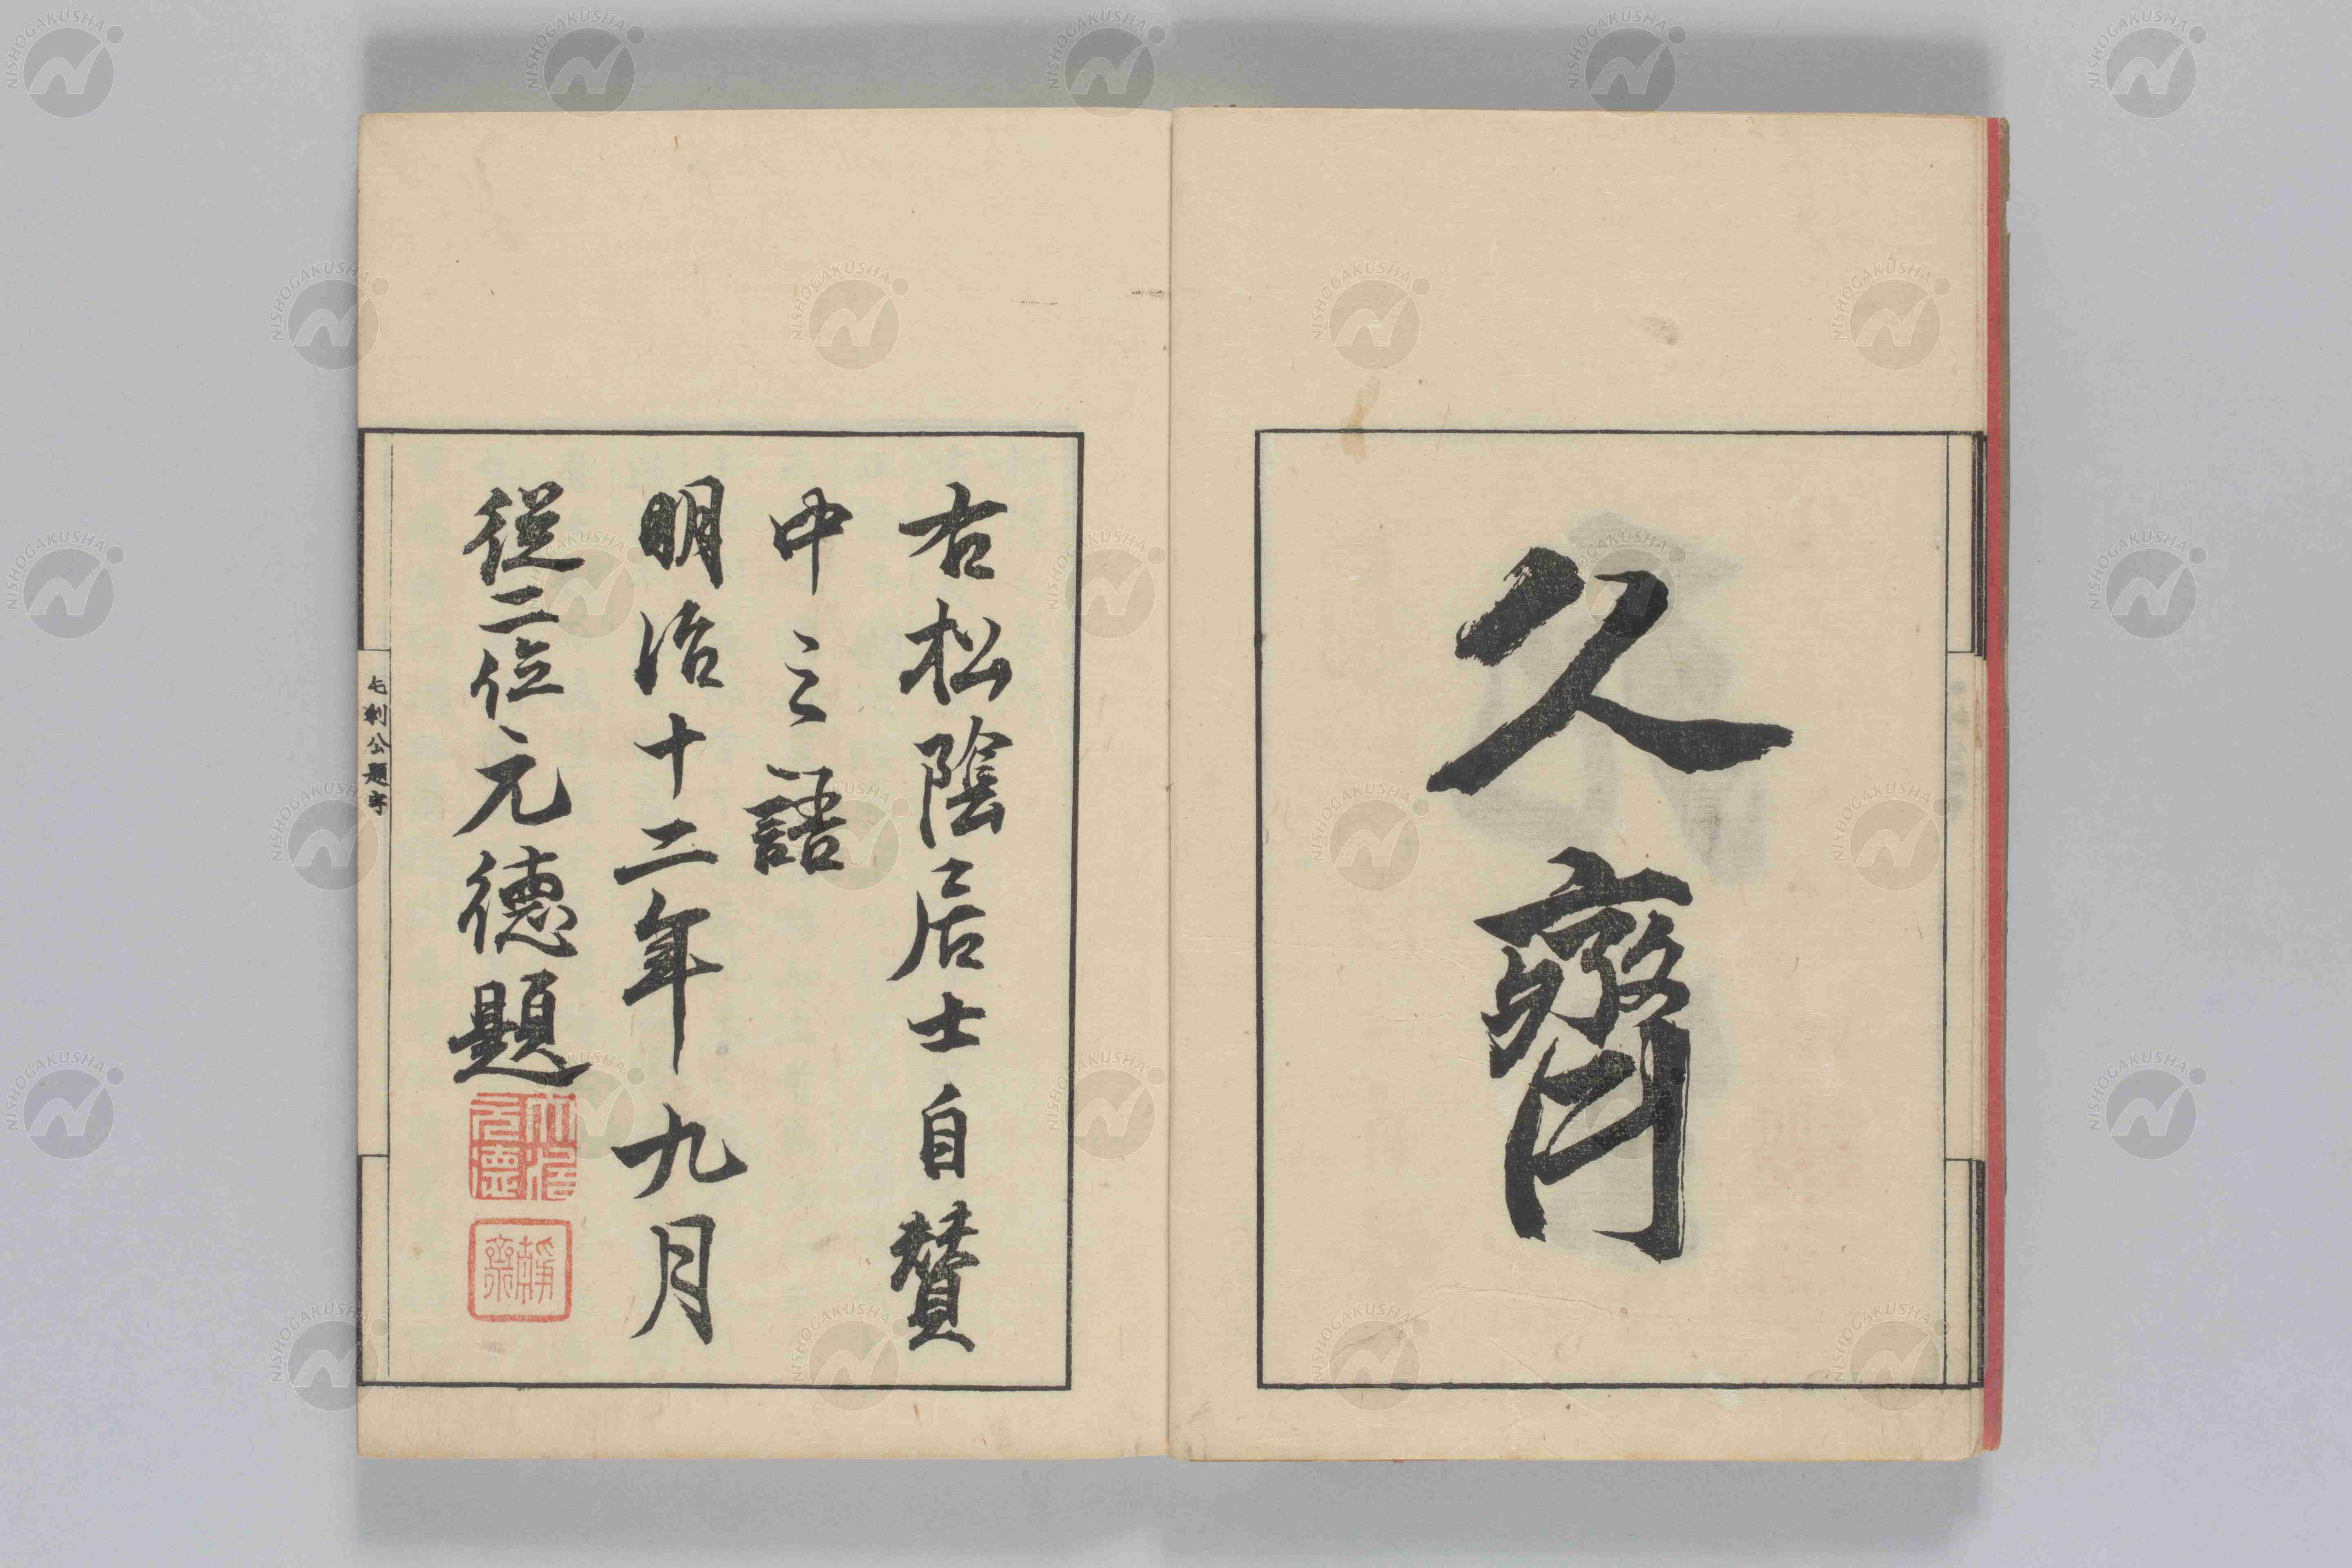 久齊
右松陰居士自賛
中之語
明治十二年九月
従二位元徳題
毛利公題字
NISHOGAKUSHA